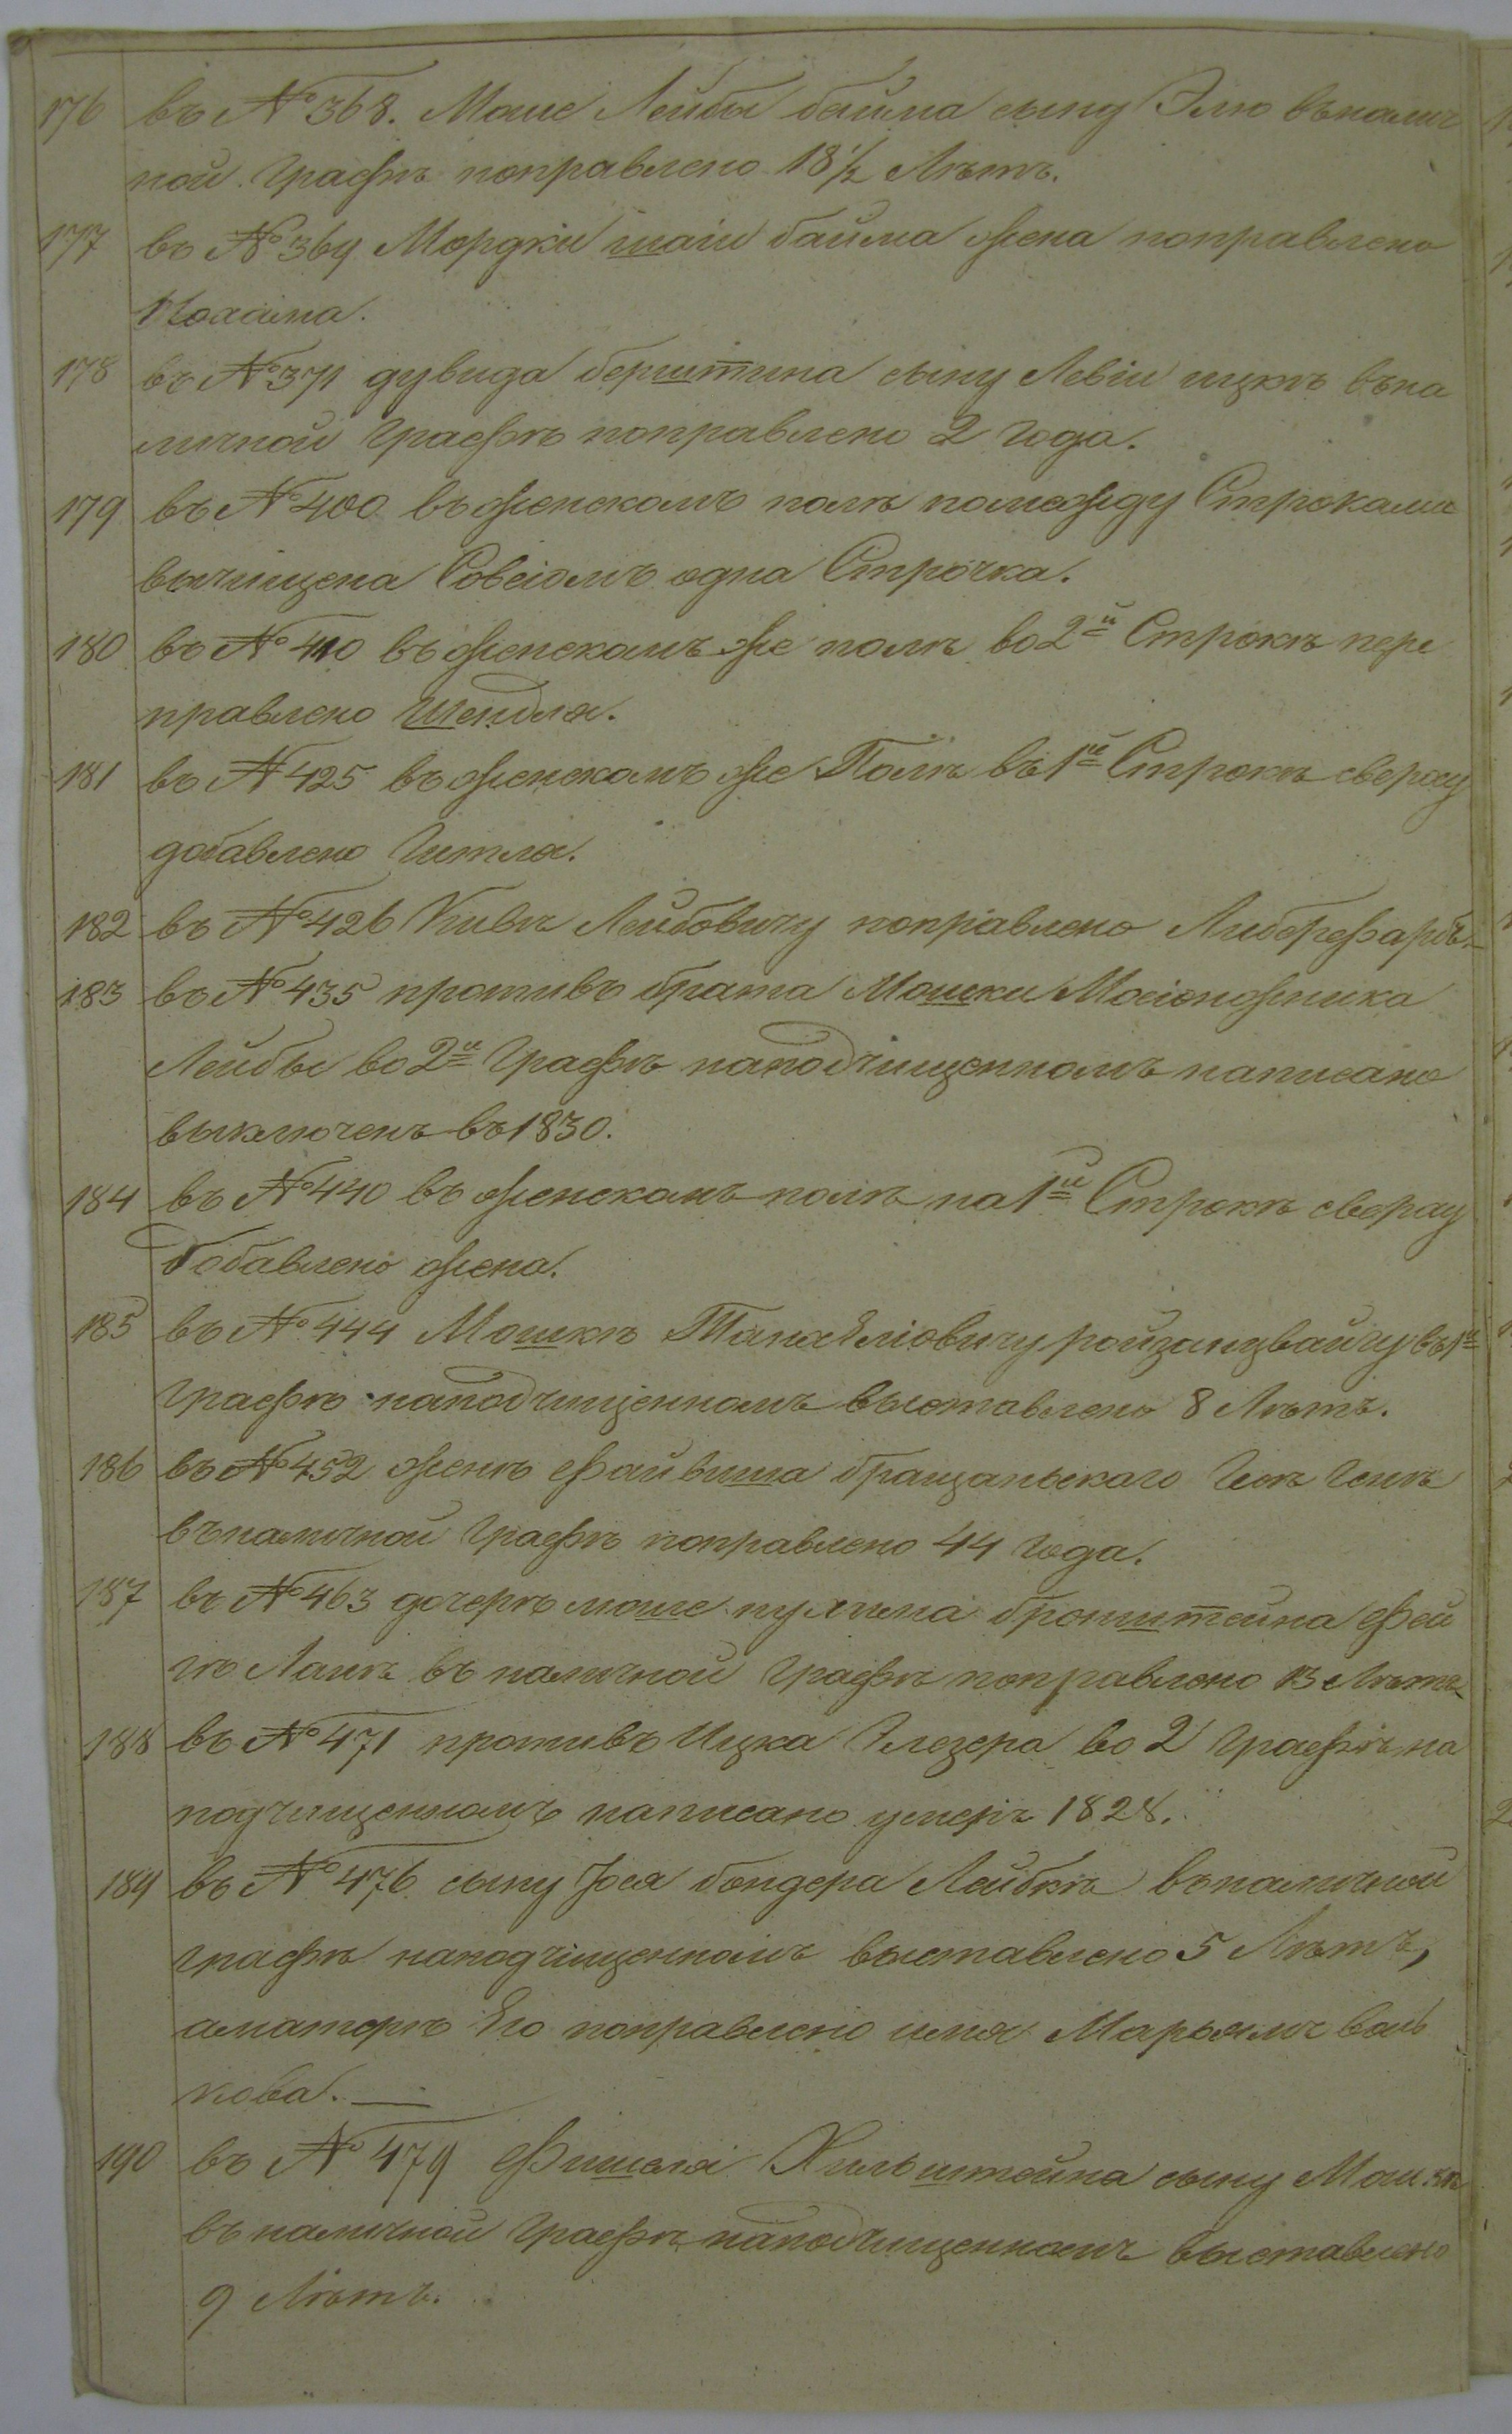 176 въ № 368. Моше Лейбы баима сыну Элю въналич
ной графѣ поправлено 18 ½ Лѣтъ.
177 въ № 369 Мордки шаи баима жена поправлено
Нохама.
178 въ № 371 дувида берштина сыну Левiи ицкѣ въна
личной графѣ поправлено 2 года.
179 въ № 400 въ женскомъ полѣ помежду Строками
вычищена Совсiомъ одна Строчка.
180 въ № 410 въ женскомъ же полѣ во 2й Строкѣ пере
правлено Шендля.
181 въ № 425 въ женскомъ же Полѣ въ 1й Строкѣ сверху
добавлено Гитля.
182 въ № 426 Кивѣ Лейбовичу поправлено Либерфарбъ.
183 въ № 435 противъ брата Мошки Мосiонжника
Лейбы во 2й графѣ наподчищенномъ написано
выключенъ въ 1830.
184 въ № 440 въ женскомъ полѣ на 1й Строкѣ сверху
добавлено жена.
185 въ № 444 Мошкѣ ройзанцвайгу въ 1й
графѣ наподчищенномъ выставлено 8 Лѣтъ.
186 въ № 452 женѣ Файвиша бращанского Генѣ
въналичной графѣ поправлено 44 года.
187 въ № 463 дочерѣ моше бронштейна Фей
гѣ Лаиѣ въ наличной графѣ поправлено 13 Лѣтъ
188 въ № 471 противъ Ицка Глезера во 2 графѣ на
подчищенномъ написано умеръ 1828.
189 въ № 476 сыну Iося бондера Лейбкѣ въналичной
графѣ наподчищенномъ выставлено 5 Лѣтъ,
аматерѣ Его поправлено имя Марьямъ воль
кова.
190 въ № 479 Фишеля Хильштейна сыну Мошкѣ
въ наличной графѣ наподчищенномъ выставлено
9 Лѣтъ.